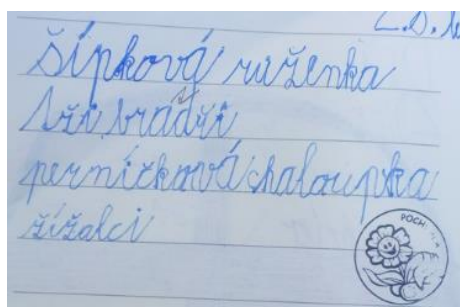 šípková ruženka
tři bradři
perníčková chaloupka
žížalci
POCH